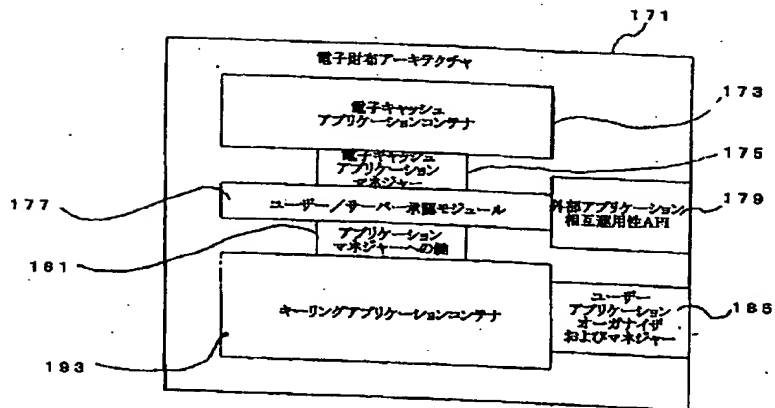 171
電子財布アーキテクチャ
電子キャッシュ
アプリケーションコンテナ
173
電子キャッシュ
アプリケーション
マネジャー
175
177
ユーザー／サーバー承認モジュール
外部アプリケーション
相互運用性API
179
161
アプリケーション
マネジャーへの鍵
キーリングアプリケーションコンテナ
ユーザー
アプリケーション
オーガナイザ
およびマネジャー
185
193